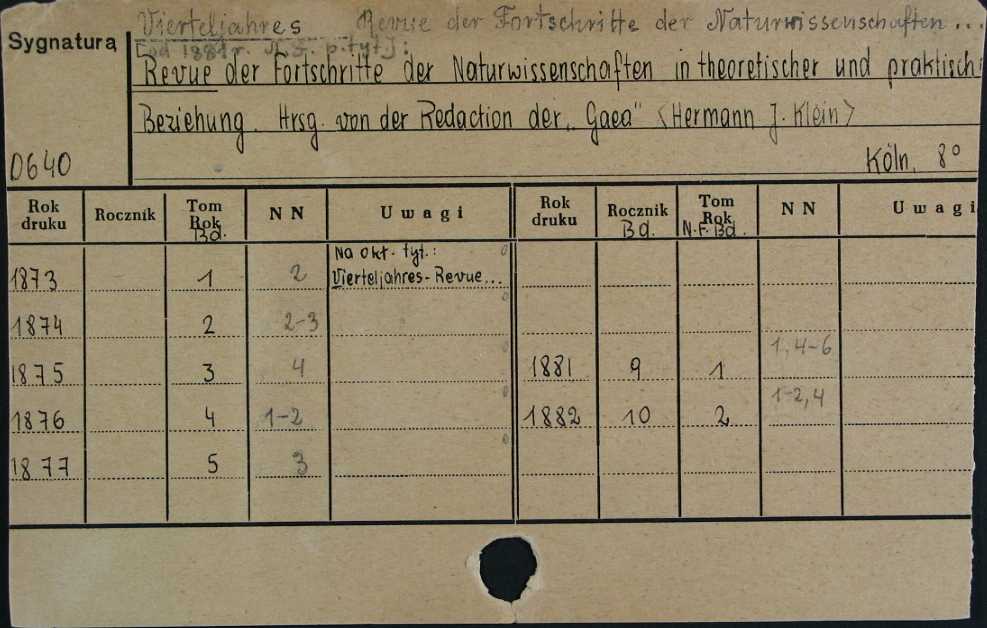 Vierteljahres Revue der Fortschritte der Naturwissenschaften...
Sygnatura
[od 1881 r. N.F. p. tyt.]:
Revue der Fortschritte der Naturwissenschaften in theoretischer und praktisch
Beziehung. Hrsg. von der Redaction der „Gaea" <Hermann J. Klein>
0640 Köln, 8°
Rok druku Rocznik Tom Rok Bd. NN Uwagi Rok druku Rocznik Bd. Tom Rok N.F. Bd. NN Uwagi
Na okł. tyt.:
1873 1 2 Vierteljahres-Revue...
1874 2 2-3
1875 3 4 1881 9 1 1,4-6
1876 4 1-2 1882 10 2 1-2,4
1877 5 3